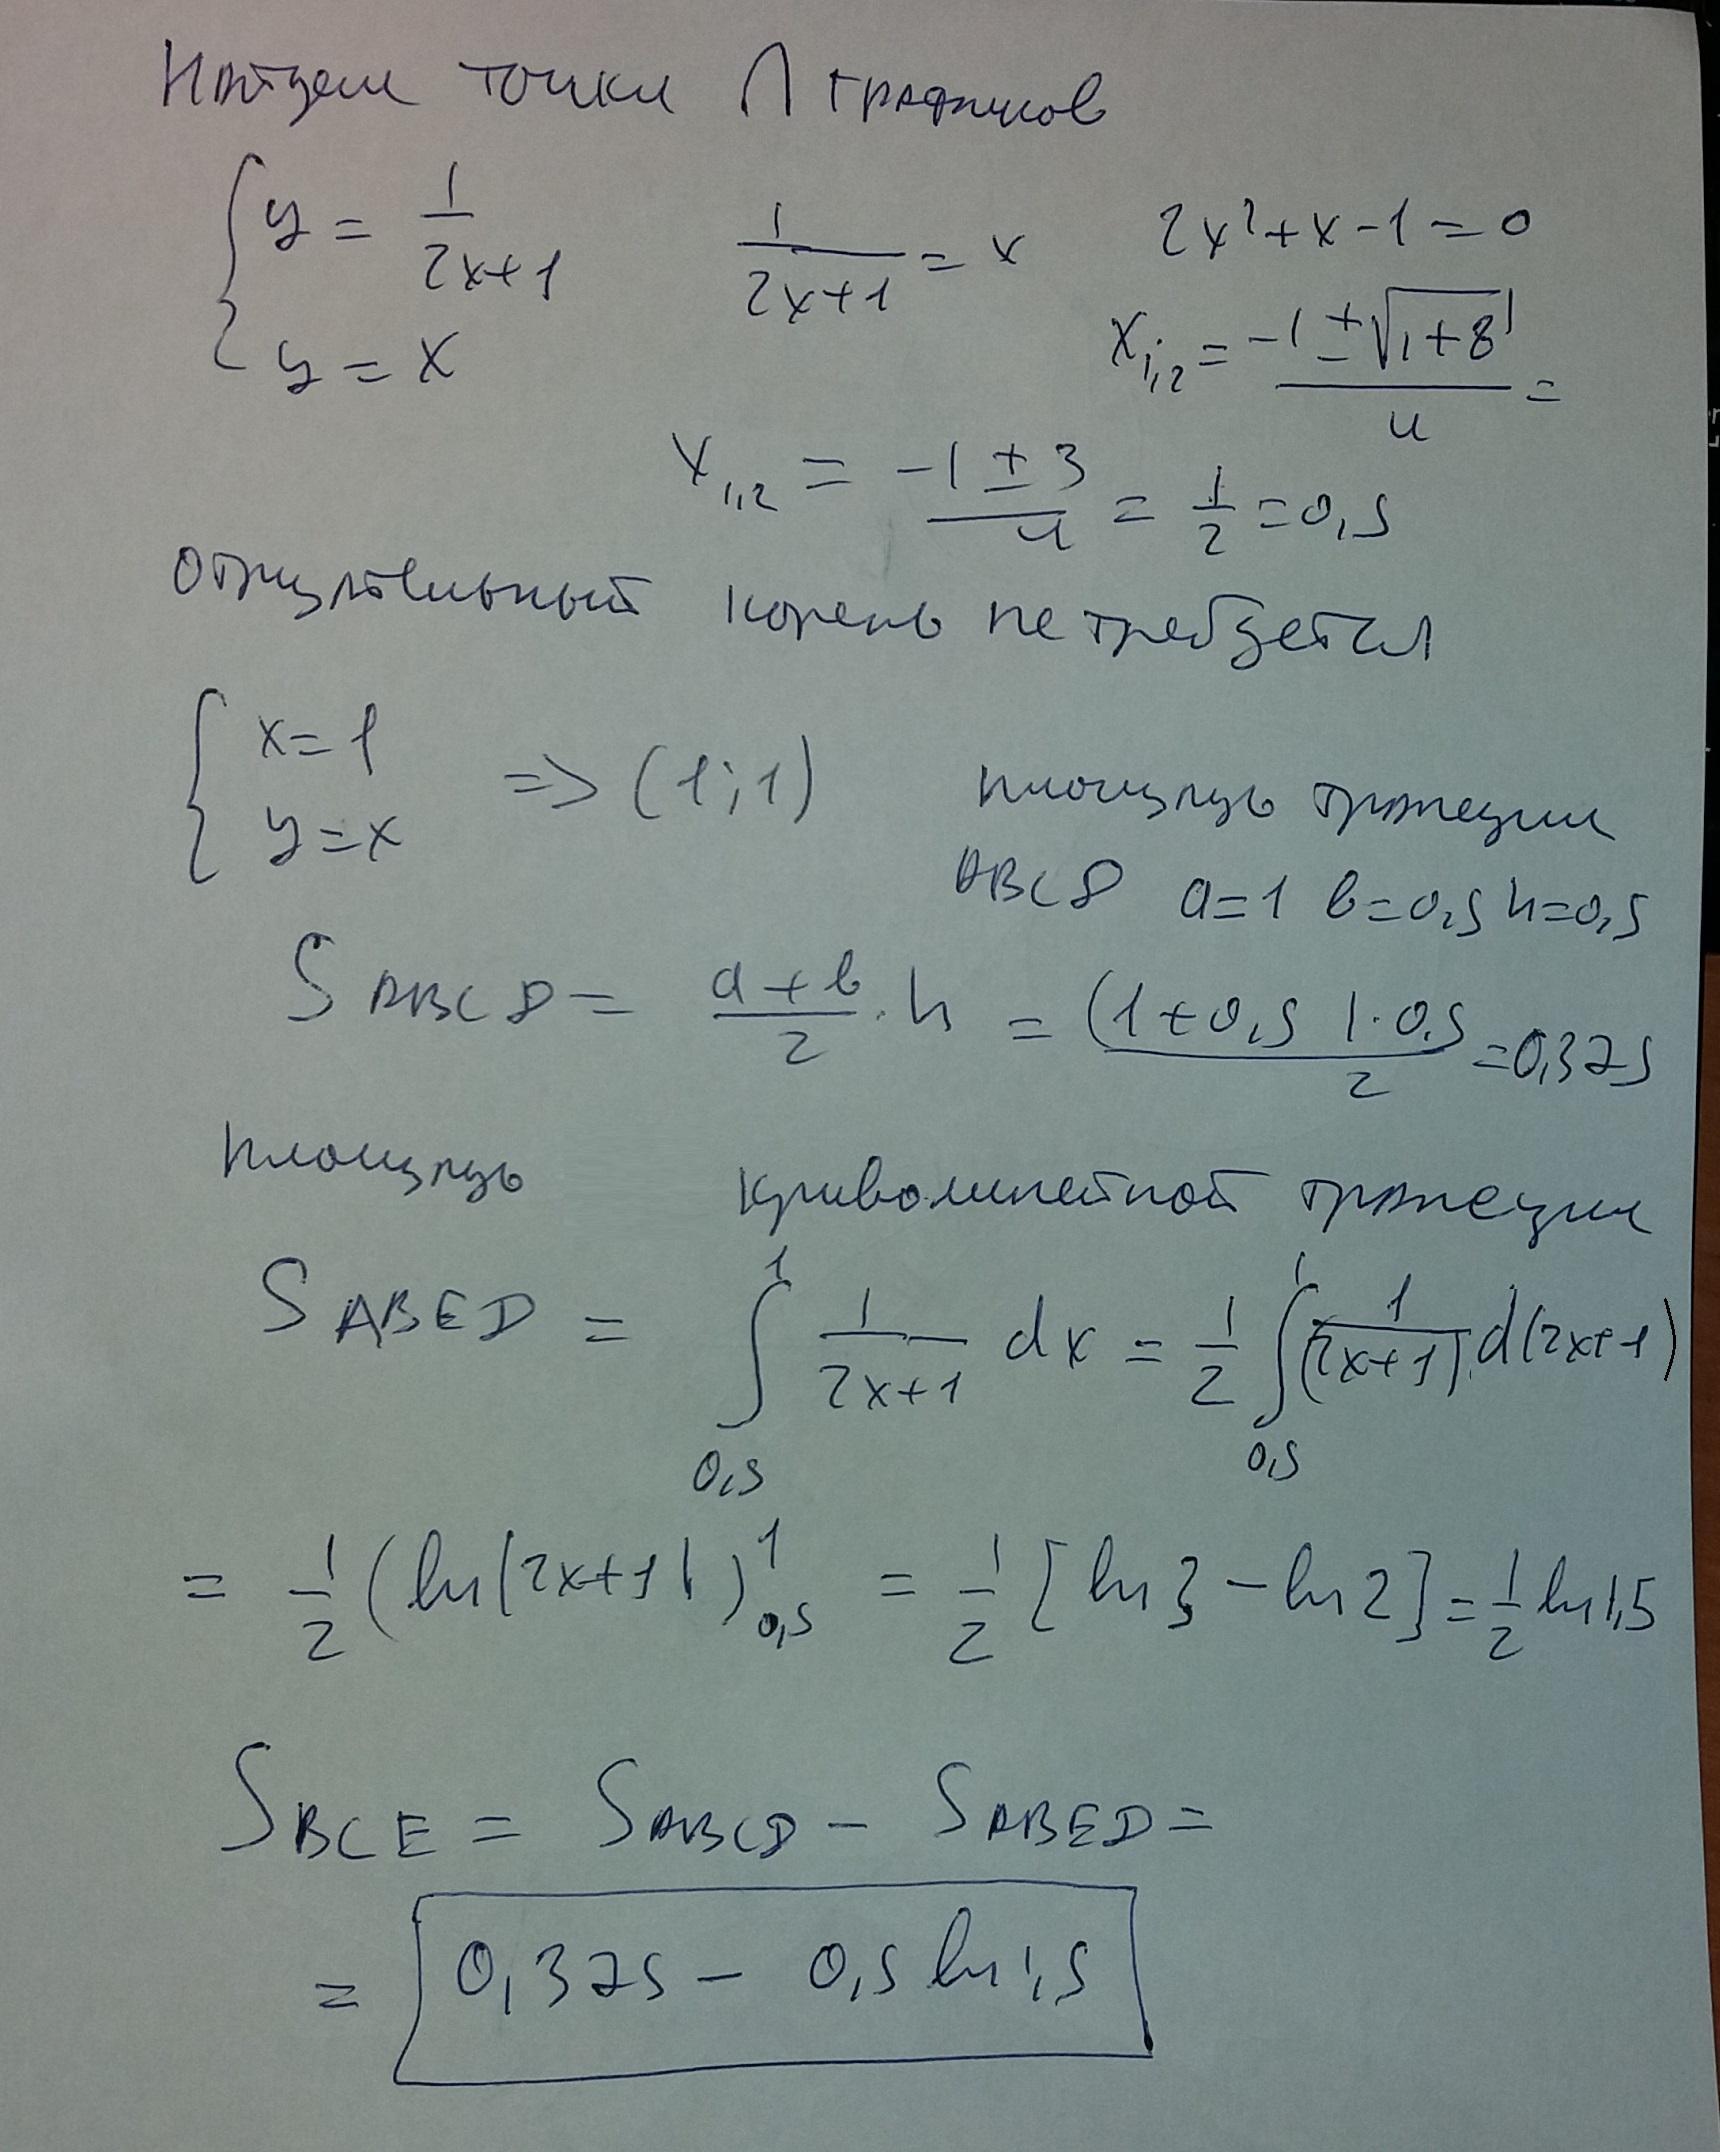 Найдем точки ∩ графиков
{ y = 1/(2x+1)    1/(2x+1) = x    2x²+x-1=0
{ y = x    x₁,₂ = (-1±√(1+8))/4 =
x₁,₂ = (-1±3)/4 = 1/2 = 0,5
Отрицательный корень не требуется
{ x=1
{ y=x    => (1;1)    площадь трапеции
ABCD a=1 b=0,5 h=0,5
S ABCD = (a+b)/2 · h = (1+0,5)·0,5/2 = 0,375
площадь криволинейной трапеции
S ABED = ∫_{0,5}^{1} 1/(2x+1) dx = 1/2 ∫_{0,5}^{1} 1/(2x+1) d(2x+1)
= 1/2 (ln|2x+1|)_{0,5}^{1} = 1/2 [ln3 - ln2] = 1/2 ln1,5
S BCE = S ABCD - S ABED =
= 0,375 - 0,5 ln1,5